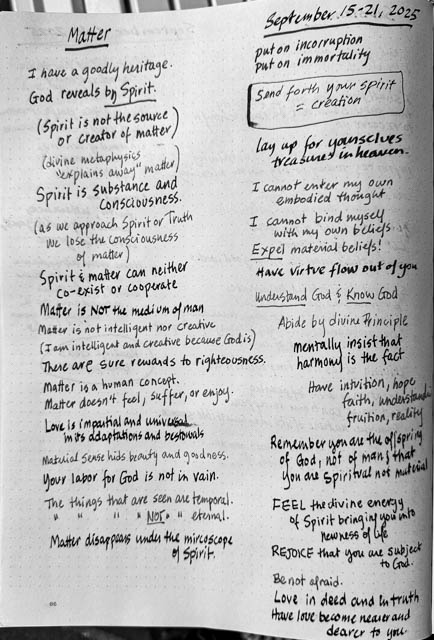 Matter
I have a goodly heritage.
God reveals by Spirit.
(Spirit is not the source
or creator of matter)
(divine metaphysics
"explains away" matter)
Spirit is substance and
consciousness.
(as we approach Spirit or Truth
we lose the consciousness
of matter)
Spirit & matter can neither
co-exist or cooperate
Matter is NOT the medium of man
Matter is not intelligent nor creative
(I am intelligent and creative because God is)
There are sure rewards to righteousness.
Matter is a human concept.
Matter doesn't feel, suffer, or enjoy.
Love is impartial and universal
in its adaptations and bestowals
Material Sense hids beauty and goodness.
Your labor for God is not in vain.
The things that are seen are temporal.
" " " " NOT " " eternal.
Matter disappears under the mircoscope
of Spirit.
September 15-21, 2025
put on incorruption
put on immortality
Send forth your spirit
= creation
lay up for yourselves
treasures in heaven.
I cannot enter my own
embodied thought
I cannot bind myself
with my own beliefs
Expel material beliefs!
Have virtue flow out of you
Understand God & Know God
Abide by divine Principle
Mentally insist that
harmony is the fact
Have intuition, hope
faith, understandin
fruition, reality
Remember you are the offspring
of God, not of man; that
you are Spiritual not material
FEEL the divine energy
of Spirit bringing you into
newness of life
REJOICE that you are subject
to God.
Be not afraid.
Love in deed and in truth
Have love become nearer and
dearer to you.